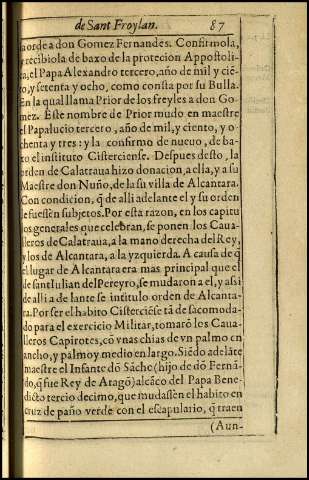 de Sant Froylan. 87
a orde a don Gomez Fernandes. Confirmola,
y recibiola de baxo de la protecion Appostoli-
ca, el Papa Alexandro tercero, año de mil y ciē-
to, y setenta y ocho, como consta por su Bulla.
En la qual llama Prior de los freyles a don Go-
mez. Este nombre de Prior mudo en maestre
el Papa lucio tercero, año de mil, y ciento, y o-
chenta y tres: y la confirmo de nueuo, de ba-
xo el instituto Cisterciense. Despues desto, la
orden de Calatraua hizo donacion, a ella, y a su
Maestre don Nuño, de la su villa de Alcantara.
Con condicion, q̃ de alli adelante el y su orden
le fuessen subjetos. Por esta razon, en los capitu
los generales que celebran, se ponen los Caua-
lleros de Calatraua, a la mano derecha del Rey,
y los de Alcantara, a la yzquierda. A causa de q̃
el lugar de Alcantara era mas principal que el
de sant Iulian del Pereyro, se mudaron a el, y assi
de alli a de lante se intitulo orden de Alcanta-
ra. Por ser el habito Cisterciēse tā de sacomoda-
do para el exercicio Militar, tomarō los Caua-
lleros Capirotes, cō vnas chias de vn palmo en
ancho, y palmo y medio en largo. Siēdo adelāte
maestre el Infante dō Sāche (hijo de dō Fernā-
do, q̃ fue Rey de Aragō) alcāço del Papa Bene-
dicto tercio decimo, que mudassen el habito en
cruz de paño verde con el escapulario, q̃ traen
(Aun-